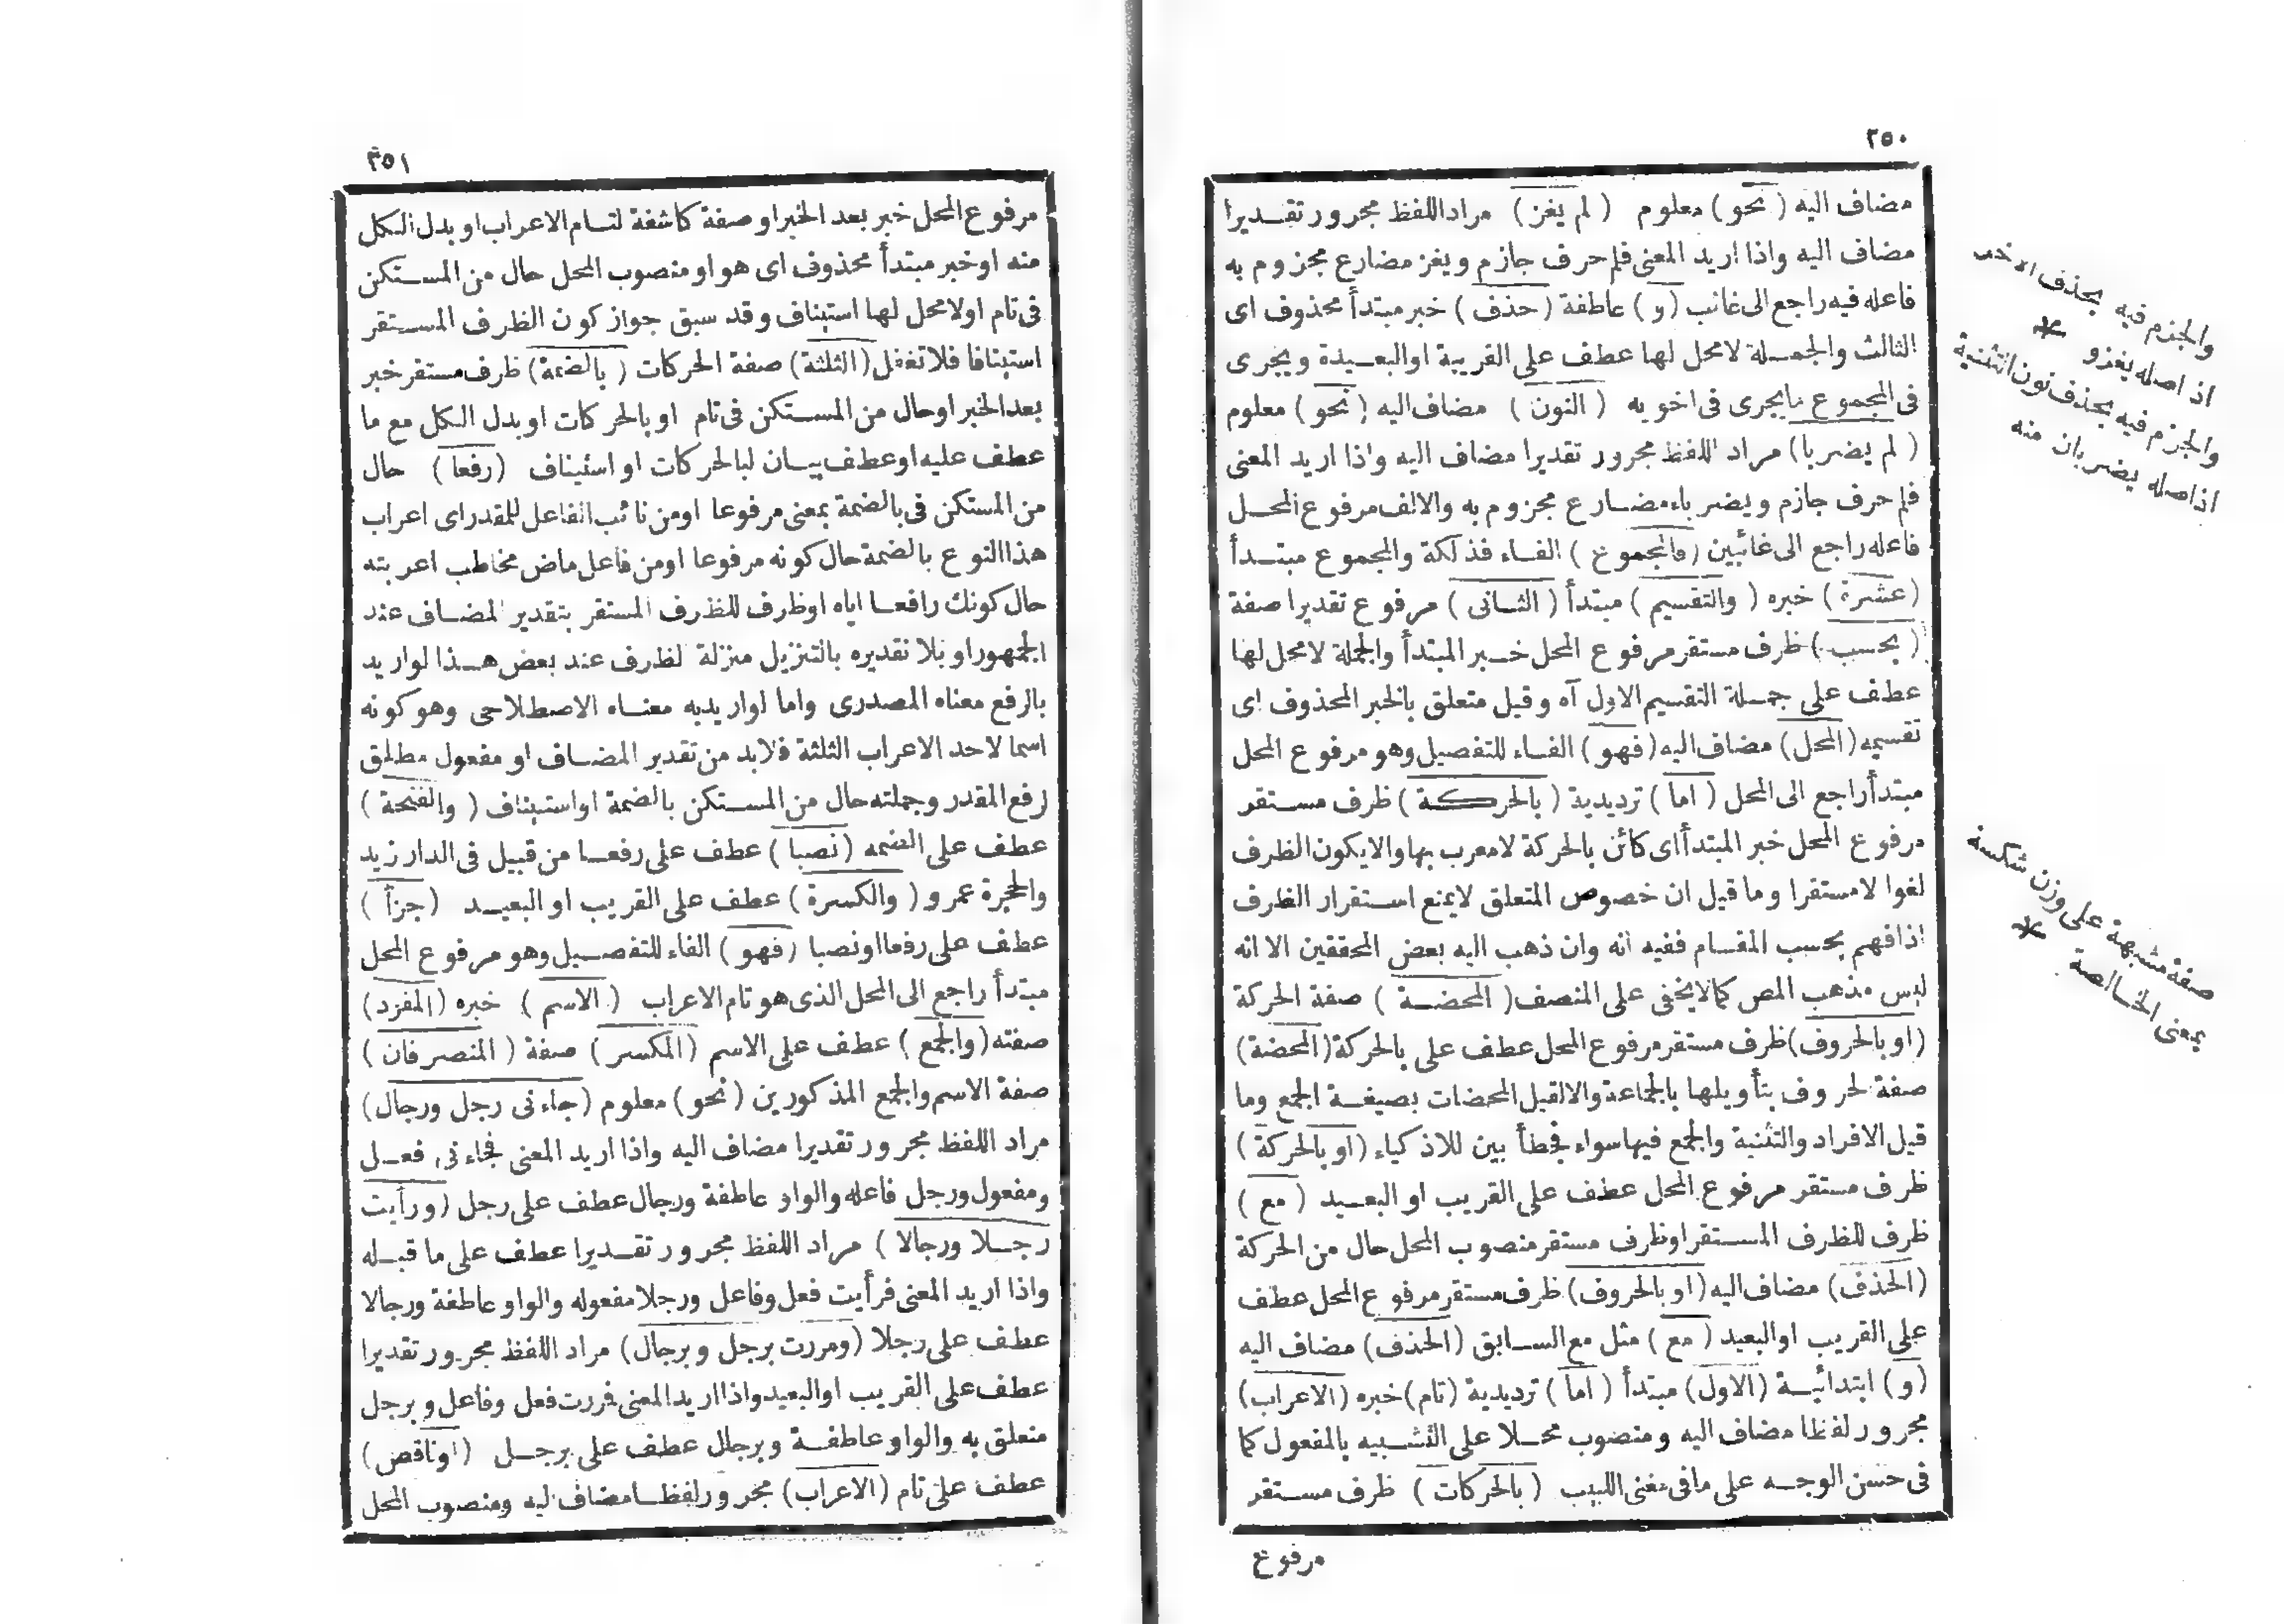 ٢٥٠
مضاف اليه (نحو) معلوم (لم يغز) مراد اللفظ مجرور تقديرا
مضاف اليه واذا اريد المعنى فلم حرف جازم ويغز مضارع مجزوم به
فاعله فيه راجع الى غائب (و) عاطفة (حذف) خبر مبتدأ محذوف اى
الثالث والجملة لا محل لها عطف على القريبة او البعيدة ويجرى
فى المجموع ما يجرى فى اخويه (النون) مضاف اليه (نحو) معلوم
(لم يضربا) مراد اللفظ مجرور تقديرا مضاف اليه واذا اريد المعنى
فلم حرف جازم ويضرباء مضارع مجزوم به والالف مرفوع المحل
فاعله راجع الى غائبين (فالمجموع) الفاء فذلكة والمجموع مبتدأ
(عشرة) خبره (والتقسيم) مبتدأ (الثانى) مرفوع تقديرا صفة
(بحسب) ظرف مستقر مرفوع المحل خبر المبتدأ والجملة لا محل لها
عطف على جملة التقسيم الاول آه وقيل متعلق بالخبر المحذوف اى
تقسيمه (المحل) مضاف اليه (فهو) الفاء للتفصيل وهو مرفوع المحل
مبتدأ راجع الى المحل (اما) ترديدية (بالحركة) ظرف مستقر
مرفوع المحل خبر المبتدأ اى كائن بالحركة لا معرب بها والا يكون الظرف
لغوا لا مستقرا وما قيل ان خصوص المتعلق لا يمنع استقرار الظرف
اذا فهم بحسب المقام ففيه انه وان ذهب اليه بعض المحققين الا انه
ليس مذهب المص كما لا يخفى على المنصف (المحضة) صفة الحركة
(او بالحروف) ظرف مستقر مرفوع المحل عطف على بالحركة (المحضة)
صفة لحروف بتأويلها بالجماعة والا لقيل المحضات بصيغة الجمع وما
قيل الافراد والتثنية والجمع فيها سواء فخطأ بين للاذكياء (او بالحركة)
ظرف مستقر مرفوع المحل عطف على القريب او البعيد (مع)
ظرف للظرف المستقر او ظرف مستقر منصوب المحل حال من الحركة
(الحذف) مضاف اليه (او بالحروف) ظرف مستقر مرفوع المحل عطف
على القريب او البعيد (مع) مثل مع السابق (الحذف) مضاف اليه
(و) ابتدائية (الاول) مبتدأ (اما) ترديدية (تام) خبره (الاعراب)
مجرور لفظا مضاف اليه ومنصوب محلا على التشبيه بالمفعول كما
فى حسن الوجه على ما فى مغنى اللبيب (بالحركات) ظرف مستقر
مرفوع
والجزم فيه بحذف الاخر
اذ اصله يغزو *
والجزم فيه بحذف نون التثنية
اذ اصله يضربان منه
صفة مشبهة على وزن شكسة
بمعنى الخالصة *
٣٥١
مرفوع المحل خبر بعد الخبر او صفة كاشفة لتام الاعراب او بدل الكل
منه او خبر مبتدأ محذوف اى هو او منصوب المحل حال من المستكن
فى تام او لا محل لها استيناف وقد سبق جواز كون الظرف المستقر
استينافا فلا تغفل (الثلثة) صفة الحركات (بالضمة) ظرف مستقر خبر
بعد الخبر او حال من المستكن فى تام او بالحركات او بدل الكل مع ما
عطف عليه او عطف بيان لبالحركات او استيناف (رفعا) حال
من المستكن فى بالضمة بمعنى مرفوعا او من نائب الفاعل للمقدر اى اعراب
هذا النوع بالضمة حال كونه مرفوعا او من فاعل ماض مخاطب اعربته
حال كونك رافعا اياه او ظرف للظرف المستقر بتقدير المضاف عند
الجمهور او بلا تقديره بالتنزيل منزلة الظرف عند بعض هذا لو اريد
بالرفع معناه المصدرى واما لو اريد به معناه الاصطلاحى وهو كونه
اسما لاحد الاعراب الثلثة فلا بد من تقدير المضاف او مفعول مطلق
لرفع المقدر وجملته حال من المستكن بالضمة او استيناف (والفتحة)
عطف على الضمه (نصبا) عطف على رفعا من قبيل فى الدار زيد
والحجرة عمرو (والكسرة) عطف على القريب او البعيد (جرا)
عطف على رفعا او نصبا (فهو) الفاء للتفصيل وهو مرفوع المحل
مبتدأ راجع الى المحل الذى هو تام الاعراب (الاسم) خبره (المفرد)
صفته (والجمع) عطف على الاسم (المكسر) صفة (المنصرفان)
صفة الاسم والجمع المذكورين (نحو) معلوم (جاءنى رجل ورجال)
مراد اللفظ مجرور تقديرا مضاف اليه واذا اريد المعنى فجاءنى فعل
ومفعول ورجل فاعله والواو عاطفة ورجال عطف على رجل (ورأيت
رجلا ورجالا) مراد اللفظ مجرور تقديرا عطف على ما قبله
واذا اريد المعنى فرأيت فعل وفاعل ورجلا مفعوله والواو عاطفة ورجالا
عطف على رجلا (ومررت برجل وبرجال) مراد اللفظ مجرور تقديرا
عطف على القريب او البعيد واذا اريد المعنى فمررت فعل وفاعل وبرجل
متعلق به والواو عاطفة وبرجال عطف على برجل (او ناقص)
عطف على تام (الاعراب) مجرور لفظا مضاف اليه ومنصوب المحل